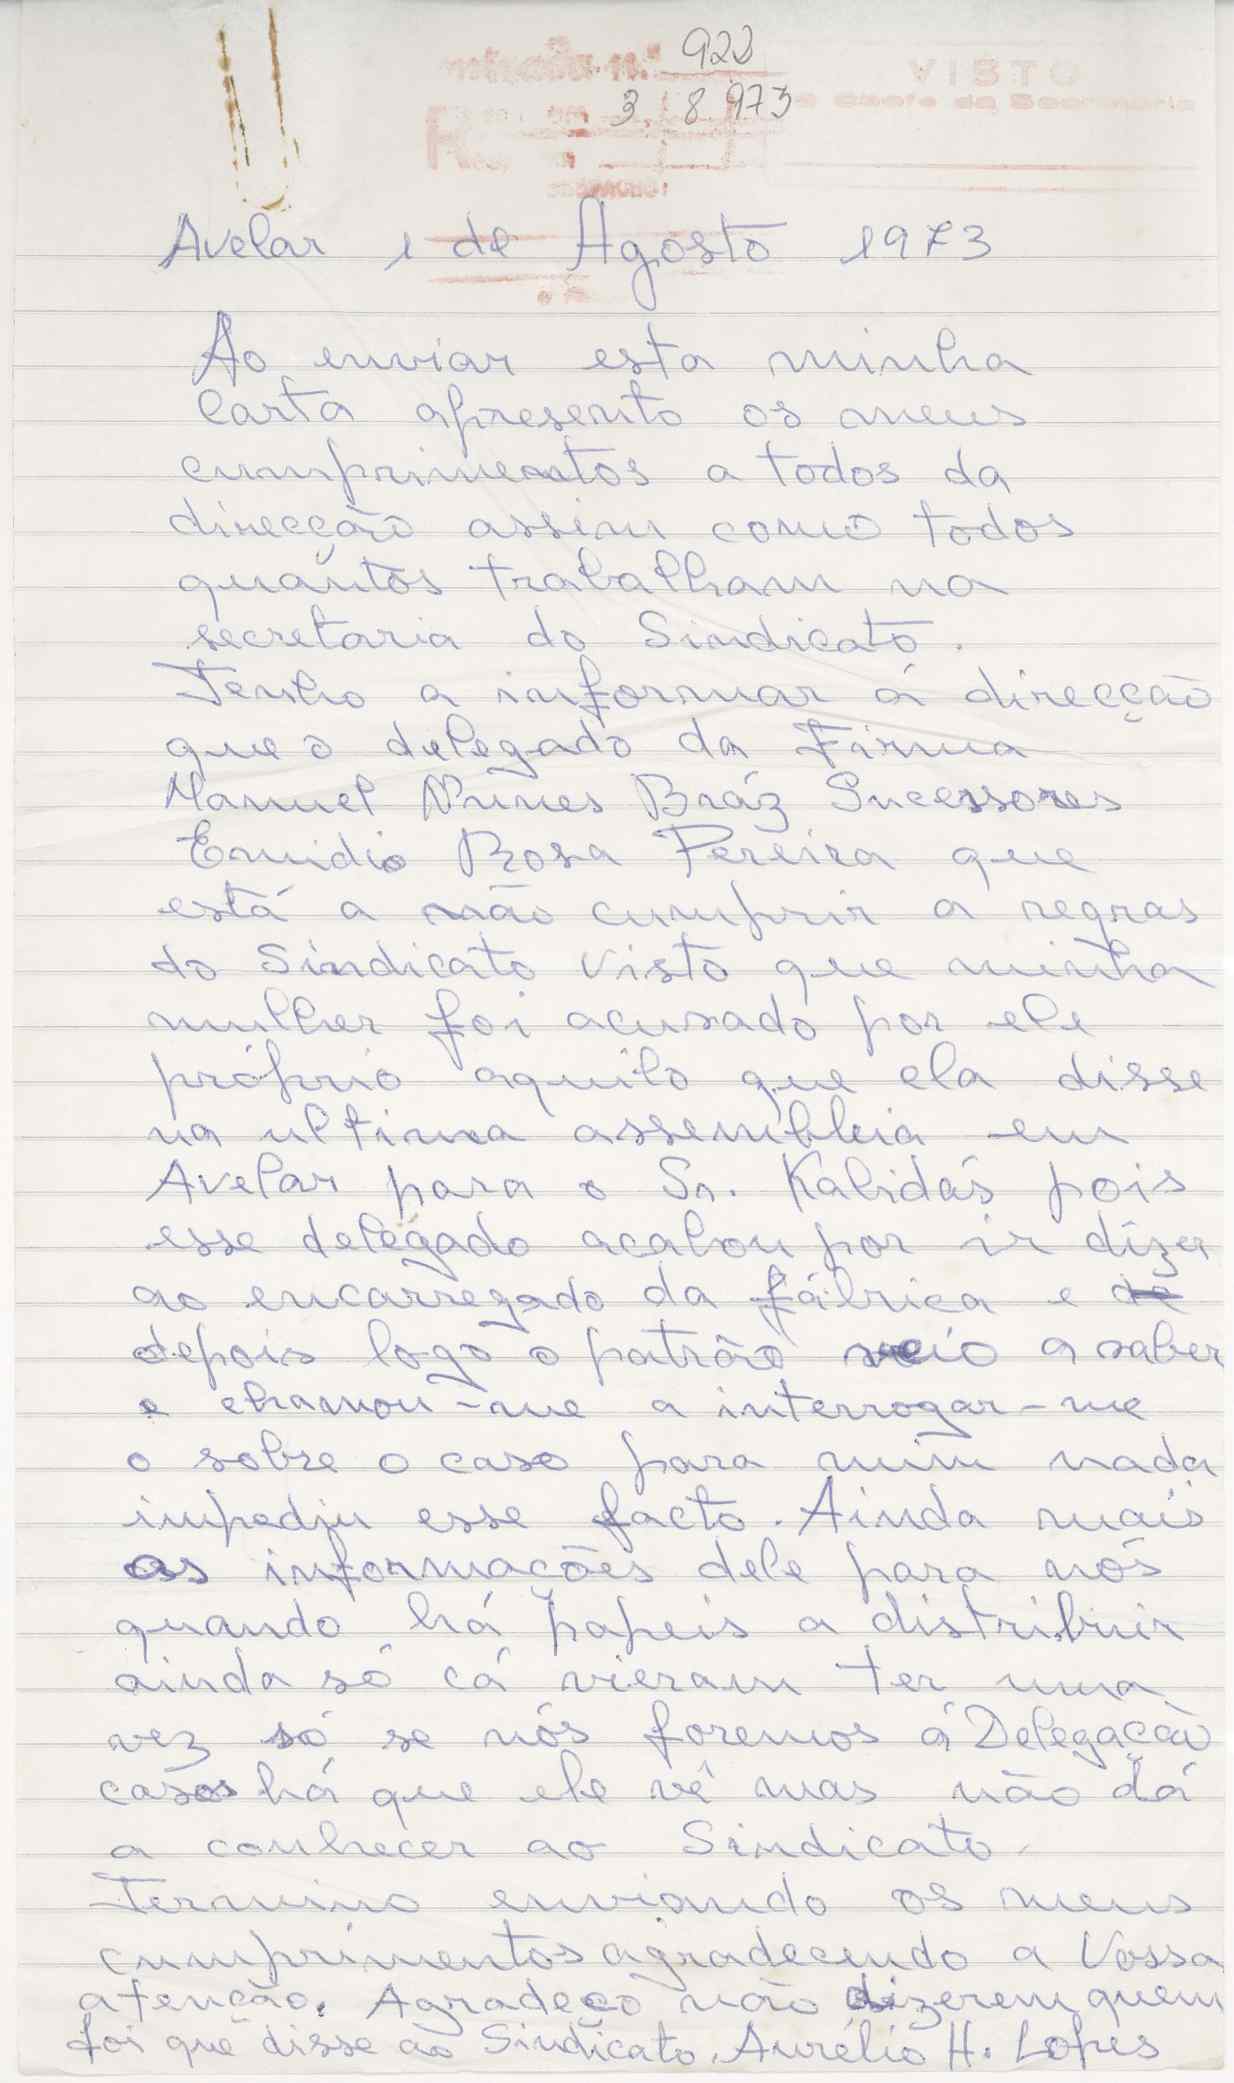 922
3 8 973
VISTO
Chefe da Secretaria
Avelar 1 de Agosto 1973
Ao enviar esta minha
Carta apresento os meus
cumprimentos a todos da
direcção assim como todos
quantos trabalham na
secretaria do Sindicato.
Tenho a informar á direcção
que o delegado da Firma
Manuel Nunes Bráz Sucessores
Emidio Rosa Pereira que
está a não cumprir a regras
do Sindicato visto que minha
mulher foi acusado por ele
próprio aquilo que ela disse
na ultima assembleia em
Avelar para o Sr. Kalidás pois
esse delegado acabou por ir dizer
ao encarregado da fábrica e de
depois logo o patrão veio a saber
e chamou-me a interrogar-me
o sobre o caso para mim nada
impediu esse facto. Ainda mais
as informações dele para nós
quando há papeis a distribuir
ainda só cá vieram ter uma
vez só se nós foremos á Delegação
casos há que ele vê mas não dá
a conhecer ao Sindicato.
Termino enviando os meus
cumprimentos agradecendo a Vossa
atenção. Agradeço não dizerem quem
foi que disse ao Sindicato. Aurélio H. Lopes